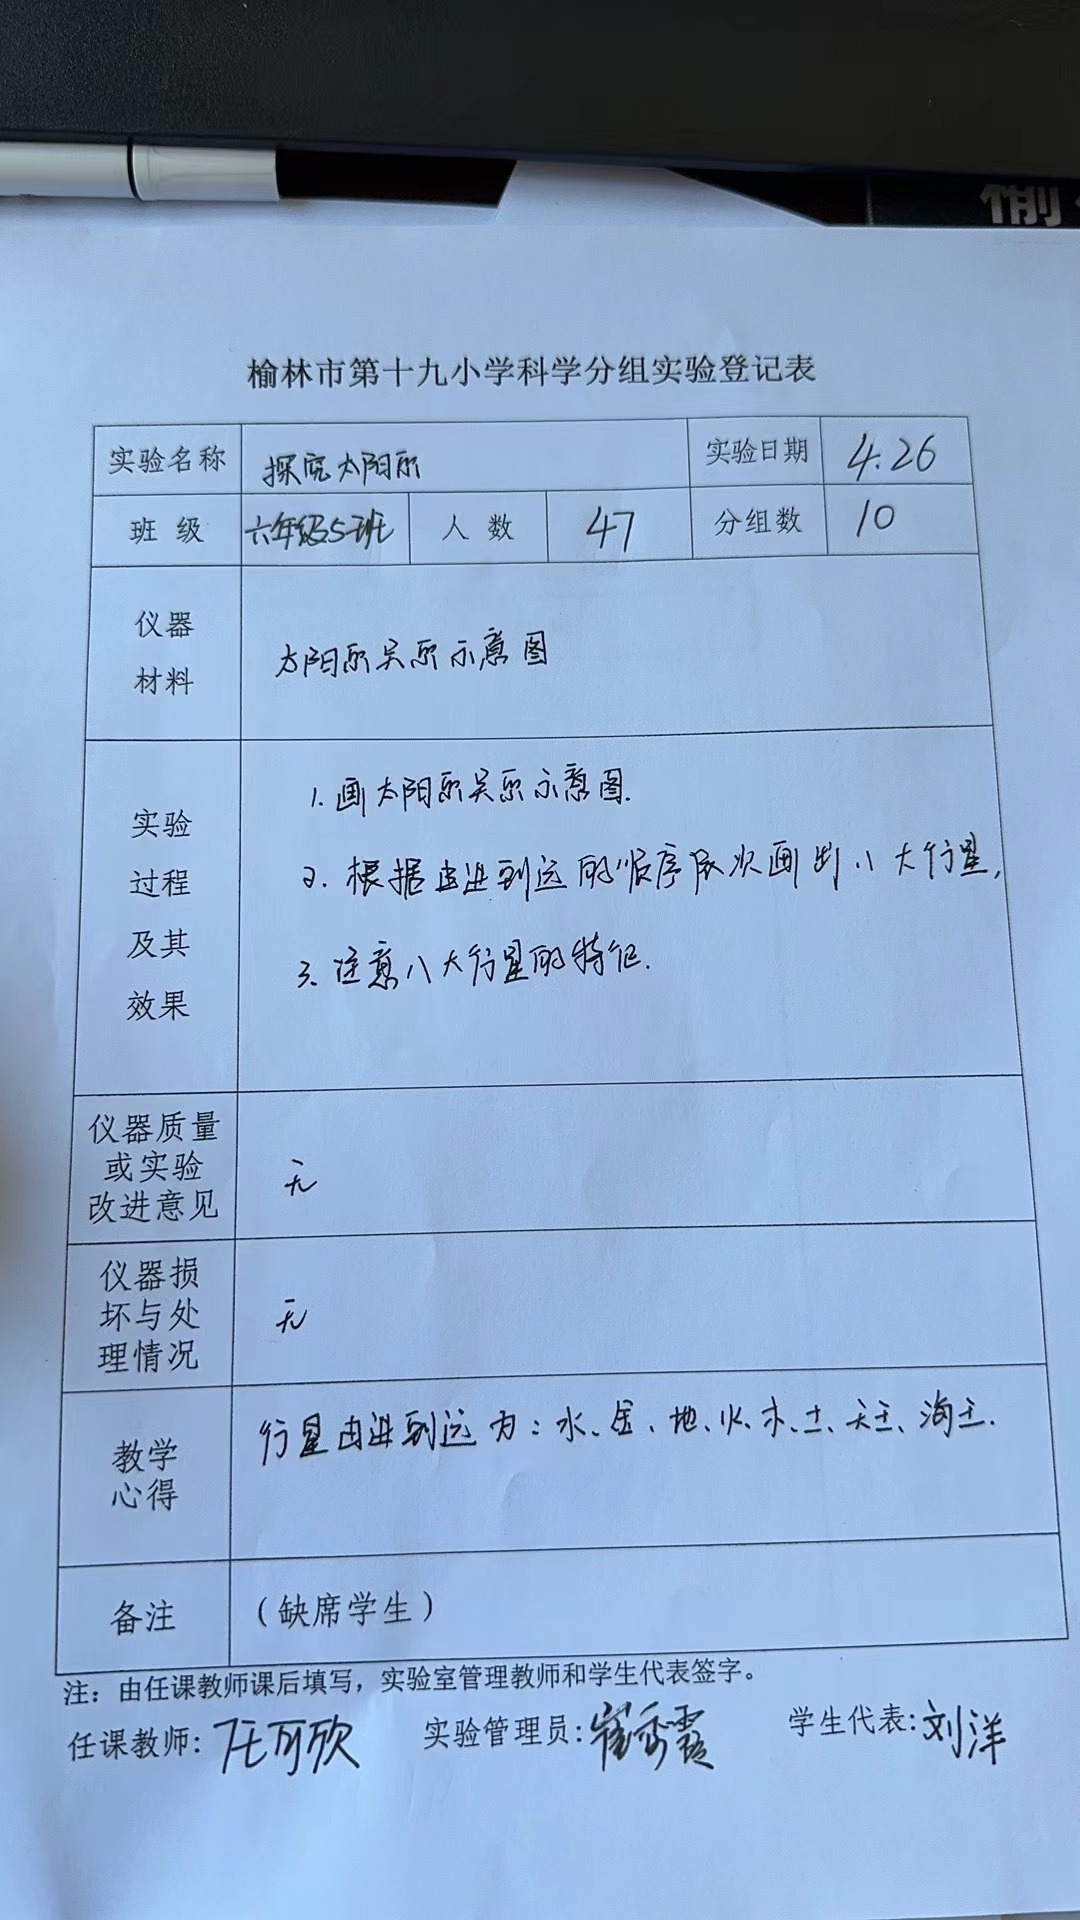 榆
榆林市第十九小学科学分组实验登记表
实验名称 探究太阳系 实验日期 4.26
班 级 六年级5班 人 数 47 分组数 10
仪器
材料
太阳系关系示意图
实验
过程
及其
效果
1.画太阳系关系示意图.
2.根据由进到远的顺序依次画出八大行星,
3.注意八大行星的特征.
仪器质量
或实验
改进意见
无
仪器损
坏与处
理情况
无
教学
心得
行星由进到远为:水、金、地、火、木、土、天王、海王.
备注 (缺席学生)
注:由任课教师课后填写,实验室管理教师和学生代表签字。
任课教师: 任可欣 实验管理员: 崔秀霞 学生代表: 刘洋